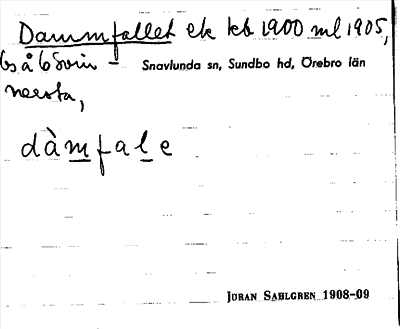 Dammfallet ek kb 1900 ml 1905,
bs å 6 öring – Snavlunda sn, Sundbo hd, Örebro län
neesta,
dàmfale
JÖRAN SAHLGREN 1908-09